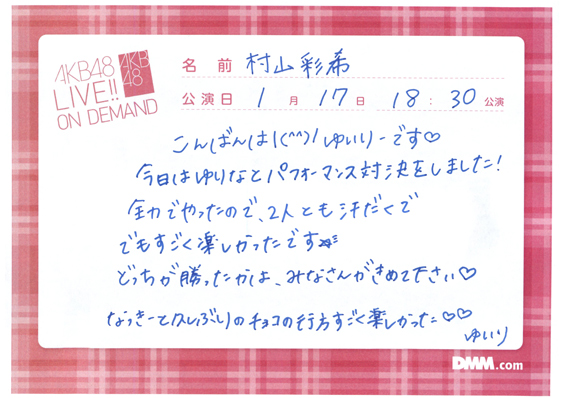 AKB48
LIVE!!
ON DEMAND
AKB
48
名前 村山彩希
公演日 1月17日 18:30公演
こんばんは!(^^)!ゆいりーです♡
今日はゆりなとパフォーマンス対決をしました!
全力でやったので、2人とも汗だくで
でもすごく楽しかったです☆
どっちが勝ったかは、みなさんがきめて下さい♡
なっきーと久しぶりのチョコの行方すごく楽しかった♡♡
ゆいり
DMM.com